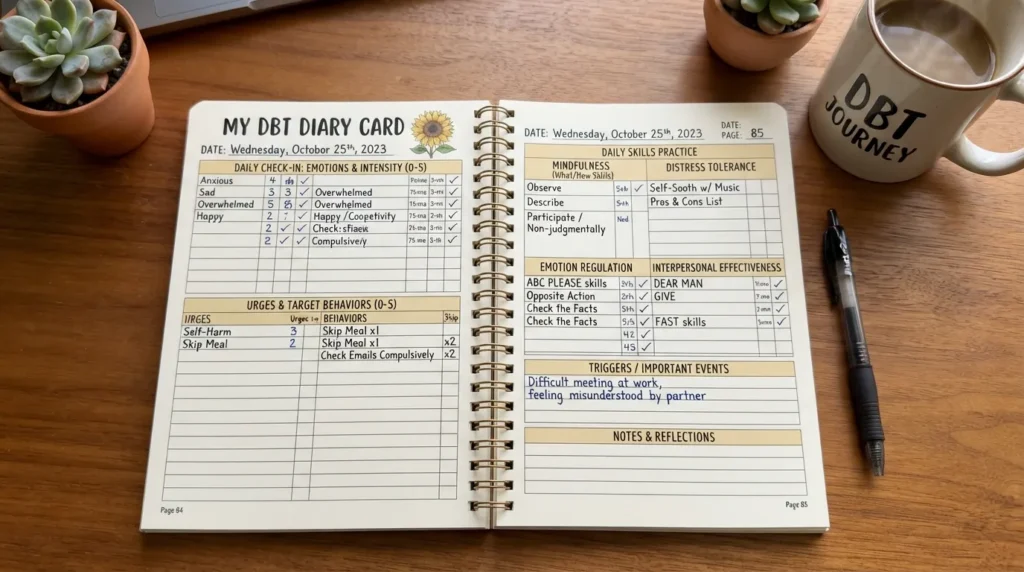 MY DBT DIARY CARD
DATE: Wednesday, October 25th, 2023
DAILY CHECK-IN: EMOTIONS & INTENSITY (0-S)
Anxious 4 ✓ ✓
Sad 3 3 ✓ Overwhelmed ✓
Overwhelmed 5 8 ✓ Overwhelmed ✓
Happy 2 ✓ Happy / ✓
2 ✓ ✓ ✓
2 ✓ ✓ Compulsively ✓
URGES & TARGET BEHAVIORS (0-S)
URGES BEHAVIORS Skip
Self-Harm 3 Skip Meal x1
Skip Meal 2 Skip Meal x1 x2
Check Emails Compulsively x2
Page 64
DATE: Wednesday, October 25th, 2023
DATE:
PAGE: 85
DAILY SKILLS PRACTICE
MINDFULNESS DISTRESS TOLERANCE
(What/How Skills)
Observe ✓ Self-Sooth w/ Music
Describe Pros & Cons List
Participate /
Non-judgmentally
EMOTION REGULATION INTERPERSONAL EFFECTIVENESS
ABC PLEASE skills ✓ DEAR MAN ✓
Opposite Action ✓ GIVE ✓
Check the Facts ✓ ✓
Check the Facts ✓ FAST skills ✓
42 ✓
45 ✓
TRIGGERS / IMPORTANT EVENTS
Difficult meeting at work,
feeling misunderstood by partner
NOTES & REFLECTIONS
Page 85
DBT
JOURNEY